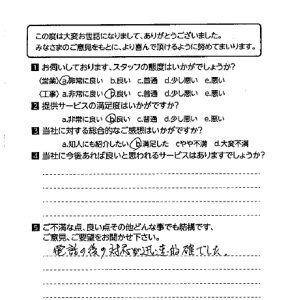 この度は大変お世話になりまして、ありがとうございました。
みなさまのご意見をもとに、より喜んで頂けるように努めてまいります。
1 お伺いしております、スタッフの態度はいかがでしょうか?
(営業) a.非常に良い b.良い c.普通 d.少し悪い e.悪い
(工事) a.非常に良い b.良い c.普通 d.少し悪い e.悪い
2 提供サービスの満足度はいかがですか?
a.非常に良い b.良い c.普通 d.少し悪い e.悪い
3 当社に対する総合的なご感想はいかがですか?
a.知人にも紹介したい b.満足した cやや不満 d.大変不満
4 当社に今後あれば良いと思われるサービスはありますでしょうか?
5 ご不満な点、良い点その他どんな事でも結構です、
ご意見、ご要望をお聞かせ下さい。
電話の後の対応が迅速的確でした。